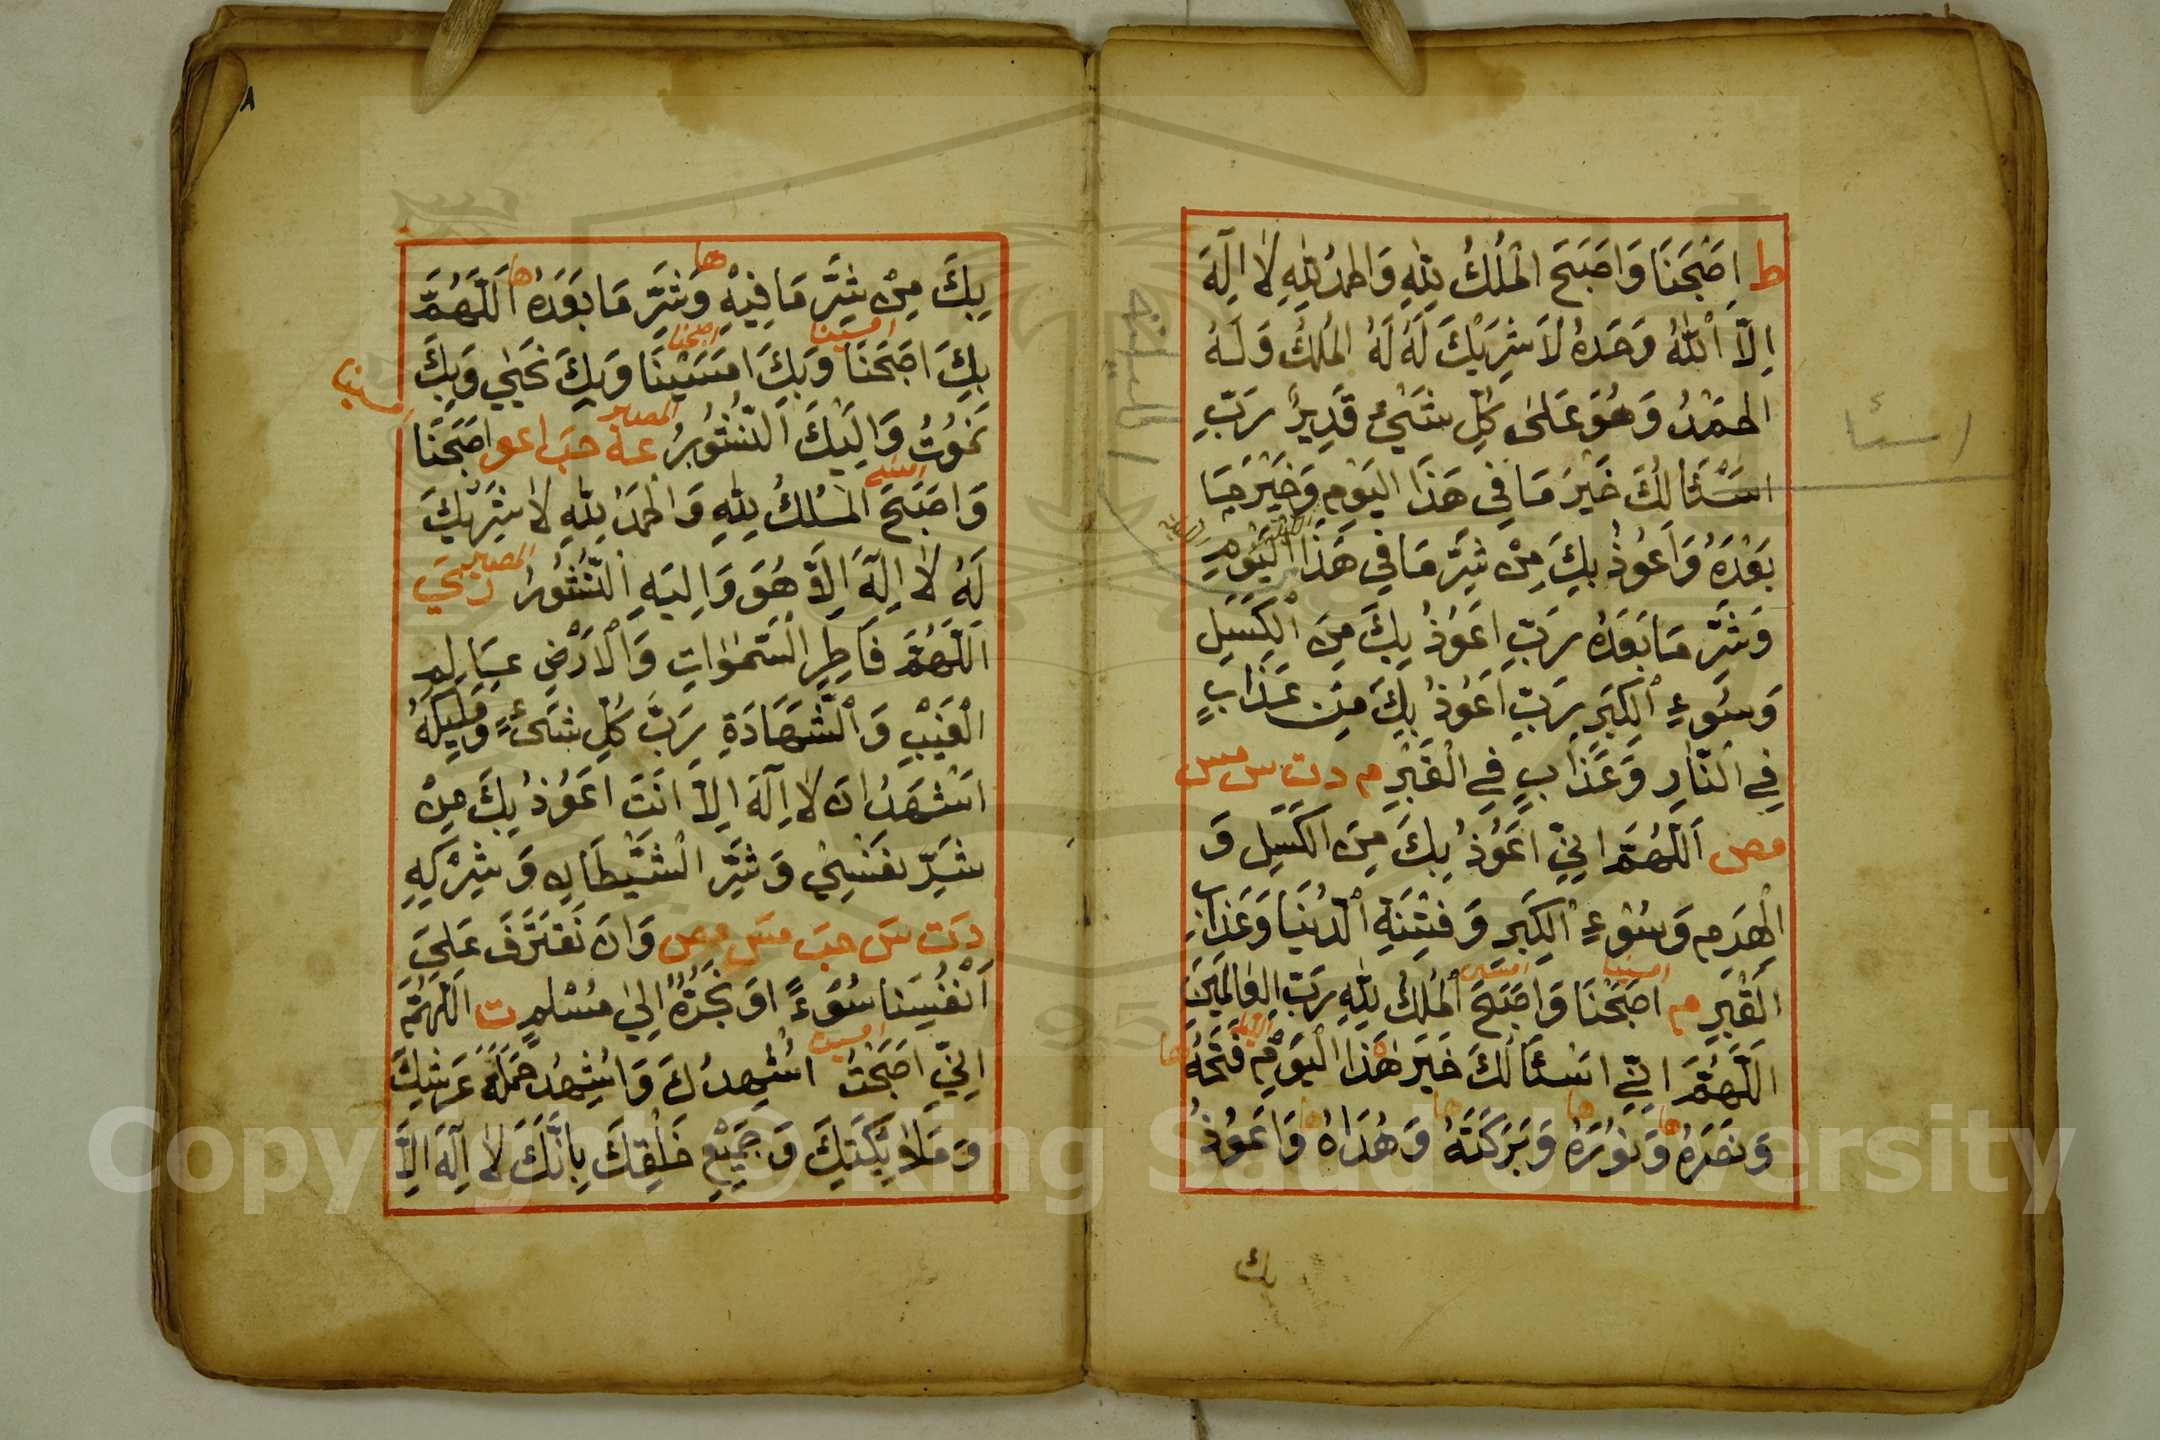 ط اِصْبَحْنَا وَاَصْبَحَ الْمُلْكُ لِلّٰهِ وَالْحَمْدُ لِلّٰهِ لَا اِلٰهَ
اِلَّا اللّٰهُ وَحْدَهُ لَا شَرِيْكَ لَهُ لَهُ الْمُلْكُ وَلَهُ
الْحَمْدُ وَهُوَ عَلٰى كُلِّ شَيْءٍ قَدِيْرٌ رَبِّ
اَسْئَالُكَ خَيْرَ مَا فِي هَذَا الْيَوْمِ وَخَيْرَ مَا
بَعْدَهُ وَاَعُوْذُ بِكَ مِنْ شَرِّ مَا فِي هَذَا الْيَوْمِ
وَشَرِّ مَا بَعْدَهُ رَبِّ اَعُوْذُ بِكَ مِنَ الْكَسَلِ
وَسُوْءِ الْكِبَرِ رَبِّ اَعُوْذُ بِكَ مِنْ عَذَابٍ
فِي النَّارِ وَعَذَابٍ فِي الْقَبْرِ م د ت س مس
مص اَللّٰهُمَّ اِنِّيْ اَعُوْذُ بِكَ مِنَ الْكَسَلِ وَ
الْهَرَمِ وَسُوْءِ الْكِبَرِ وَفِتْنَةِ الدُّنْيَا وَعَذَابِ
امسينا امسى
الْقَبْرِ م اَصْبَحْنَا وَاَصْبَحَ الْمُلْكُ لِلّٰهِ رَبِّ الْعَالَمِيْنَ
اَللّٰهُمَّ اِنِّيْ اَسْئَالُكَ خَيْرَ هٰذَا الْيَوْمِ فَتْحَهُ ها
ها ها ها ها
وَنَصْرَهُ وَنُوْرَهُ وَبَرَكَتَهُ وَهُدَاهُ وَاَعُوْذُ
بك
اسئا
٨
ها ها
بِكَ مِنْ شَرِّ مَا فِيْهِ وَشَرِّ مَا بَعْدَهُ اَللّٰهُمَّ
امسينا اصبحنا
بِكَ اَصْبَحْنَا وَبِكَ اَمْسَيْنَا وَبِكَ نَحْيٰى وَبِكَ
المصير
نَمُوْتُ وَاِلَيْكَ النُّشُوْرُ عه حب اعو اَصْبَحْنَا
امسينا
امسى
وَاَصْبَحَ الْمُلْكُ لِلّٰهِ وَالْحَمْدُ لِلّٰهِ لَا شَرِيْكَ
المصير
لَهُ لَا اِلٰهَ اِلَّا هُوَ وَاِلَيْهِ النُّشُوْرُ ر ي
اَللّٰهُمَّ فَاطِرَ السَّمٰوَاتِ وَالْاَرْضِ عَالِمَ
الْغَيْبِ وَالشَّهَادَةِ رَبَّ كُلِّ شَيْءٍ وَمَلِيْكَهُ
اَشْهَدُ اَنْ لَا اِلٰهَ اِلَّا اَنْتَ اَعُوْذُ بِكَ مِنْ
شَرِّ نَفْسِيْ وَشَرِّ الشَّيْطَانِ وَشِرْكِهِ
د ت س حب مس مص وَاَنْ نَقْتَرِفَ عَلٰى
اَنْفُسِنَا سُوْءً اَوْ نَجُرَّهُ اِلٰى مُسْلِمٍ ت اَللّٰهُمَّ
امسيت
اِنِّيْ اَصْبَحْتُ اُشْهِدُكَ وَاُشْهِدُ حَمَلَةَ عَرْشِكَ
وَمَلَائِكَتَكَ وَجَمِيْعَ خَلْقِكَ بِاَنَّكَ لَا اِلٰهَ اِلَّا
Copyright © King Saud University